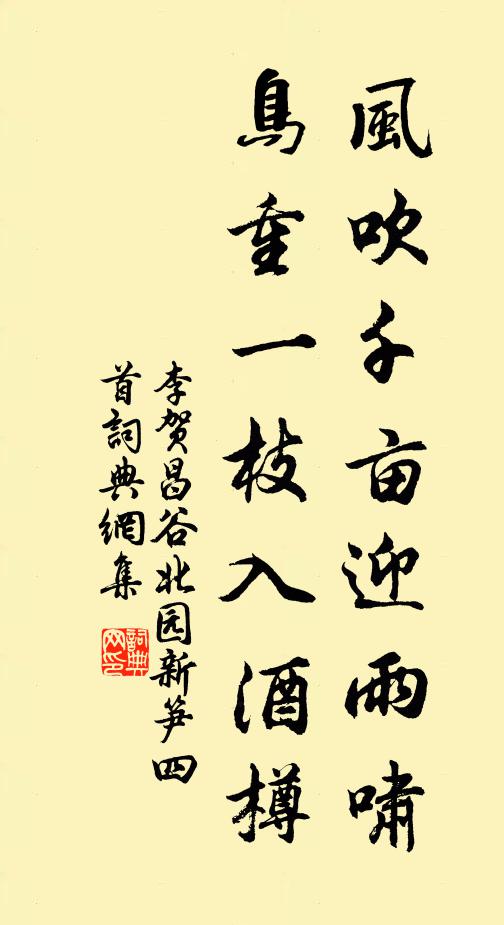 風吹千亩迎雨啸
鳥重一枝入酒樽
李贺昌谷北园新笋四
首詞典網集
詞典
网印